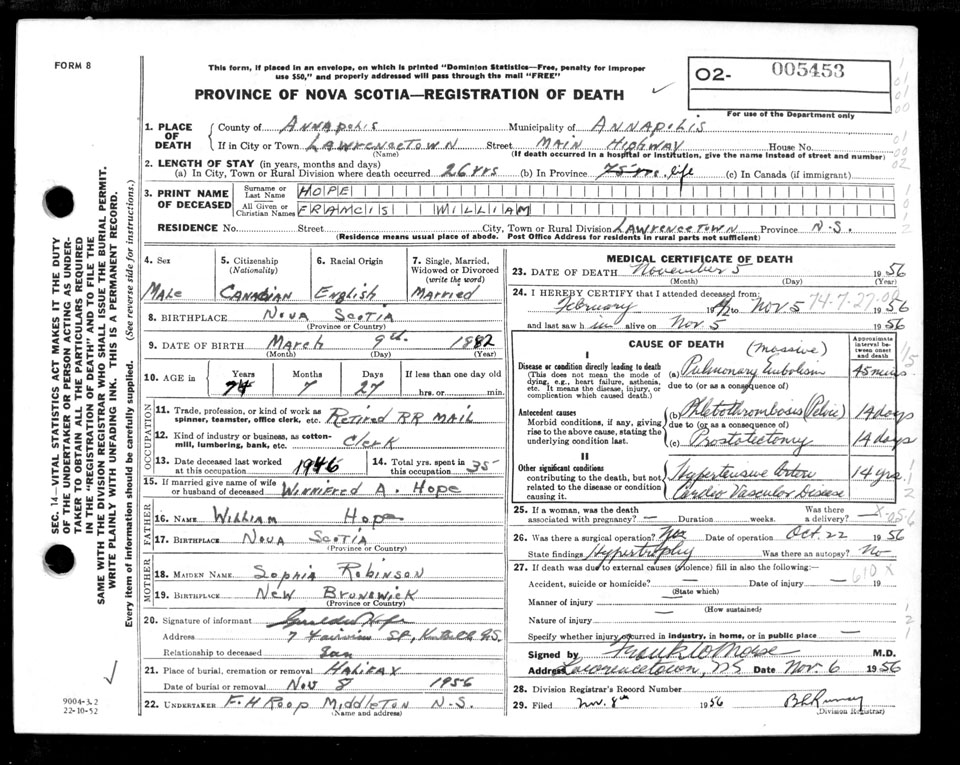 FORM 8
This form, if placed in an envelope, on which is printed "Dominion Statistics—Free, penalty for improper
use $50," and properly addressed will pass through the mail "FREE"
02- 005453
PROVINCE OF NOVA SCOTIA—REGISTRATION OF DEATH
For use of the Department only
1. PLACE OF DEATH
County of Annapolis Municipality of Annapolis
If in City or Town Lawrencetown Street Main Highway House No.
(Name) (If death occurred in a hospital or institution, give the name instead of street and number)
2. LENGTH OF STAY (in years, months and days)
(a) In City, Town or Rural Division where death occurred 26 yrs (b) In Province life (c) In Canada (if immigrant)
3. PRINT NAME OF DECEASED
Surname or Last Name HOPE
All Given or Christian Names FRANCIS WILLIAM
RESIDENCE No. Street City, Town or Rural Division Lawrencetown Province N.S.
(Residence means usual place of abode. Post Office Address for residents in rural parts not sufficient)
4. Sex Male
5. Citizenship (Nationality) Canadian
6. Racial Origin English
7. Single, Married, Widowed or Divorced (write the word) Married
8. BIRTHPLACE Nova Scotia
(Province or Country)
9. DATE OF BIRTH March 9th 1882
(Month) (Day) (Year)
10. AGE in Years Months Days If less than one day old
74 7 27 hrs. or min.
OCCUPATION
11. Trade, profession, or kind of work as spinner, teamster, office clerk, etc. Retired RR Mail
12. Kind of industry or business, as cotton-mill, lumbering, bank, etc. Clerk
13. Date deceased last worked at this occupation 1946
14. Total yrs. spent in this occupation 35
15. If married give name of wife or husband of deceased Winnifred A. Hope
FATHER
16. NAME William Hope
17. BIRTHPLACE Nova Scotia
(Province or Country)
MOTHER
18. MAIDEN NAME Sophia Robinson
19. BIRTHPLACE New Brunswick
(Province or Country)
20. Signature of informant Hope
Address 7 Fairview St, N.S.
Relationship to deceased Son
21. Place of burial, cremation or removal Halifax
Date of burial or removal Nov 8 1956
22. UNDERTAKER F.H Roop Middleton N.S.
(Name and address)
MEDICAL CERTIFICATE OF DEATH
23. DATE OF DEATH November 5 1956
(Month) (Day) (Year)
24. I HEREBY CERTIFY that I attended deceased from:
February to Nov 5 1956
74-7-27-02
and last saw h im alive on Nov 5 1956
CAUSE OF DEATH
Approximate interval between onset and death
I
Disease or condition directly leading to death
(This does not mean the mode of dying, e.g., heart failure, asthenia, etc. It means the disease, injury, or complication which caused death.)
(massive)
(a) Pulmonary Embolism 45 mins.
due to (or as a consequence of)
Antecedent causes
Morbid conditions, if any, giving rise to the above cause, stating the underlying condition last.
(b) Phlebothrombosis (Pelvic) 14 days
due to (or as a consequence of)
(c) Prostatectomy 14 days
II
Other significant conditions
contributing to the death, but not related to the disease or condition causing it.
Hypertensive Arterio 14 yrs.
Cardio Vascular Disease
25. If a woman, was the death associated with pregnancy? — Duration weeks. Was there a delivery?
26. Was there a surgical operation? Yes Date of operation Oct. 22 1956
State findings Hypertrophy Was there an autopsy? No
27. If death was due to external causes (violence) fill in also the following:
610 X
Accident, suicide or homicide? — Date of injury — 19
(State which)
Manner of injury —
(How sustained)
Nature of injury —
Specify whether injury occurred in industry, in home, or in public place —
Signed by Frank W Morse M.D.
Address Lawrencetown, NS Date Nov. 6 1956
28. Division Registrar's Record Number
29. Filed Nov. 8th 1956
(Division Registrar)
SEC. 14—VITAL STATISTICS ACT MAKES IT THE DUTY
OF THE UNDERTAKER OR PERSON ACTING AS UNDER-
TAKER TO OBTAIN ALL THE PARTICULARS REQUIRED
IN THE "REGISTRATION OF DEATH" AND TO FILE THE
SAME WITH THE DIVISION REGISTRAR WHO SHALL ISSUE THE BURIAL PERMIT.
WRITE PLAINLY WITH UNFADING INK. THIS IS A PERMANENT RECORD.
Every item of information should be carefully supplied. (See reverse side for instructions.)
9004-3.2
22-10-52